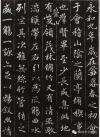 永和九年歲在癸丑暮春之初會
于會稽山陰之蘭亭脩禊事
也群賢畢至少長咸集此地
有崇山峻領茂林脩竹又有清流激
湍暎帶左右引以為流觴曲水
列坐其次雖無絲竹管弦之
盛一觴一詠亦足以暢敘幽情